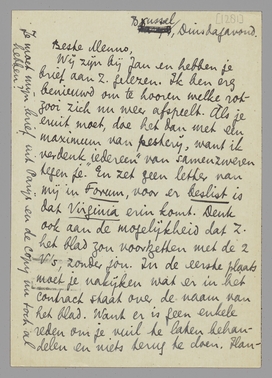 Brussel
[1251]
Dinsdagavond.
Beste Menno,
Wij zijn bij Jan en hebben je
brief aan Z. gelezen. Ik ben erg
benieuwd om te hooren welke rot-
zooi zich nu weer afspeelt. Als je
eruit moet, doe het dan met een
maximum van pesterij, want ik
verdenk "iedereen" van samenzweren
tegen je. En zet geen letter van
mij in Forum, voor er beslist is
dat Virginia erin komt. Denk
ook aan de mogelijkheid dat Z.
het blad zou voortzetten met de 2
V's, zonder jou. In de eerste plaats
moet je nakijken wat er in het
contract staat over de naam van
het blad. Want er is geen enkele
reden om je vuil te laten behan-
delen en niets terug te doen. Han-
Je moet mijn brief uit Parijs en de copy nu toch al
hebben?